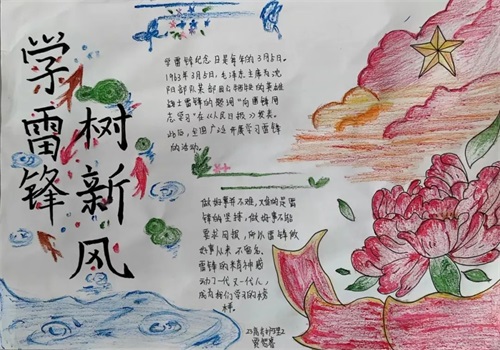 学雷锋
树新风
学雷锋纪念日是每年的3月5日。
1963年3月5日,毛泽东主席为沈
阳部队某部因公牺牲的英雄
战士雷锋的题词“向雷锋同
志学习”在《人民日报》发表。
此后,全国广泛开展学习雷锋
的活动。
做好事并不难,难的是雷
锋的坚持,做好事不能
要求回报,所以雷锋做
好事从来不留名,
雷锋的精神感
动了一代又一代人,
成为我们学习的榜
样。